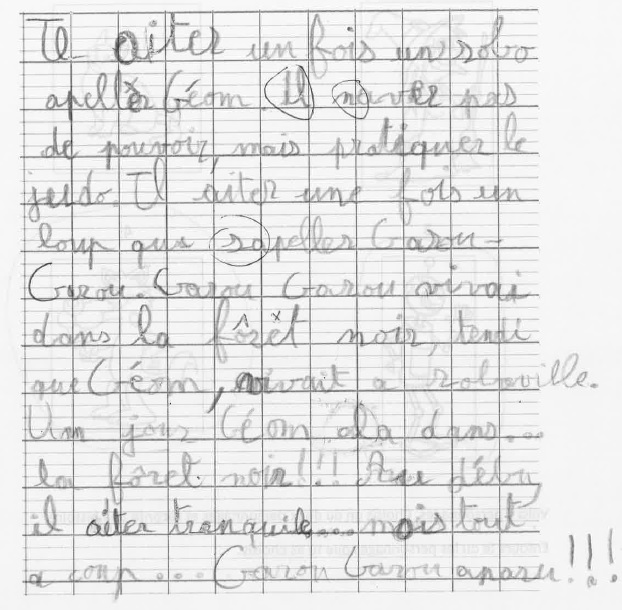 Il aiter un fois un robo
apeller Géom. Il naver pas
de pouvoir, mais pratiquer le
judo. Il aiter une fois un
loup que sapeller Garou-
Garou. Garou Garou vivai
dans la fôrèt noir, tendi
que Géom, vivait a roboville.
Un jour Géom ala dans...
la fôret noir!!! Au débu,
il aiter tranquile... mais tout
a coup... Garou Garou aparu!!!